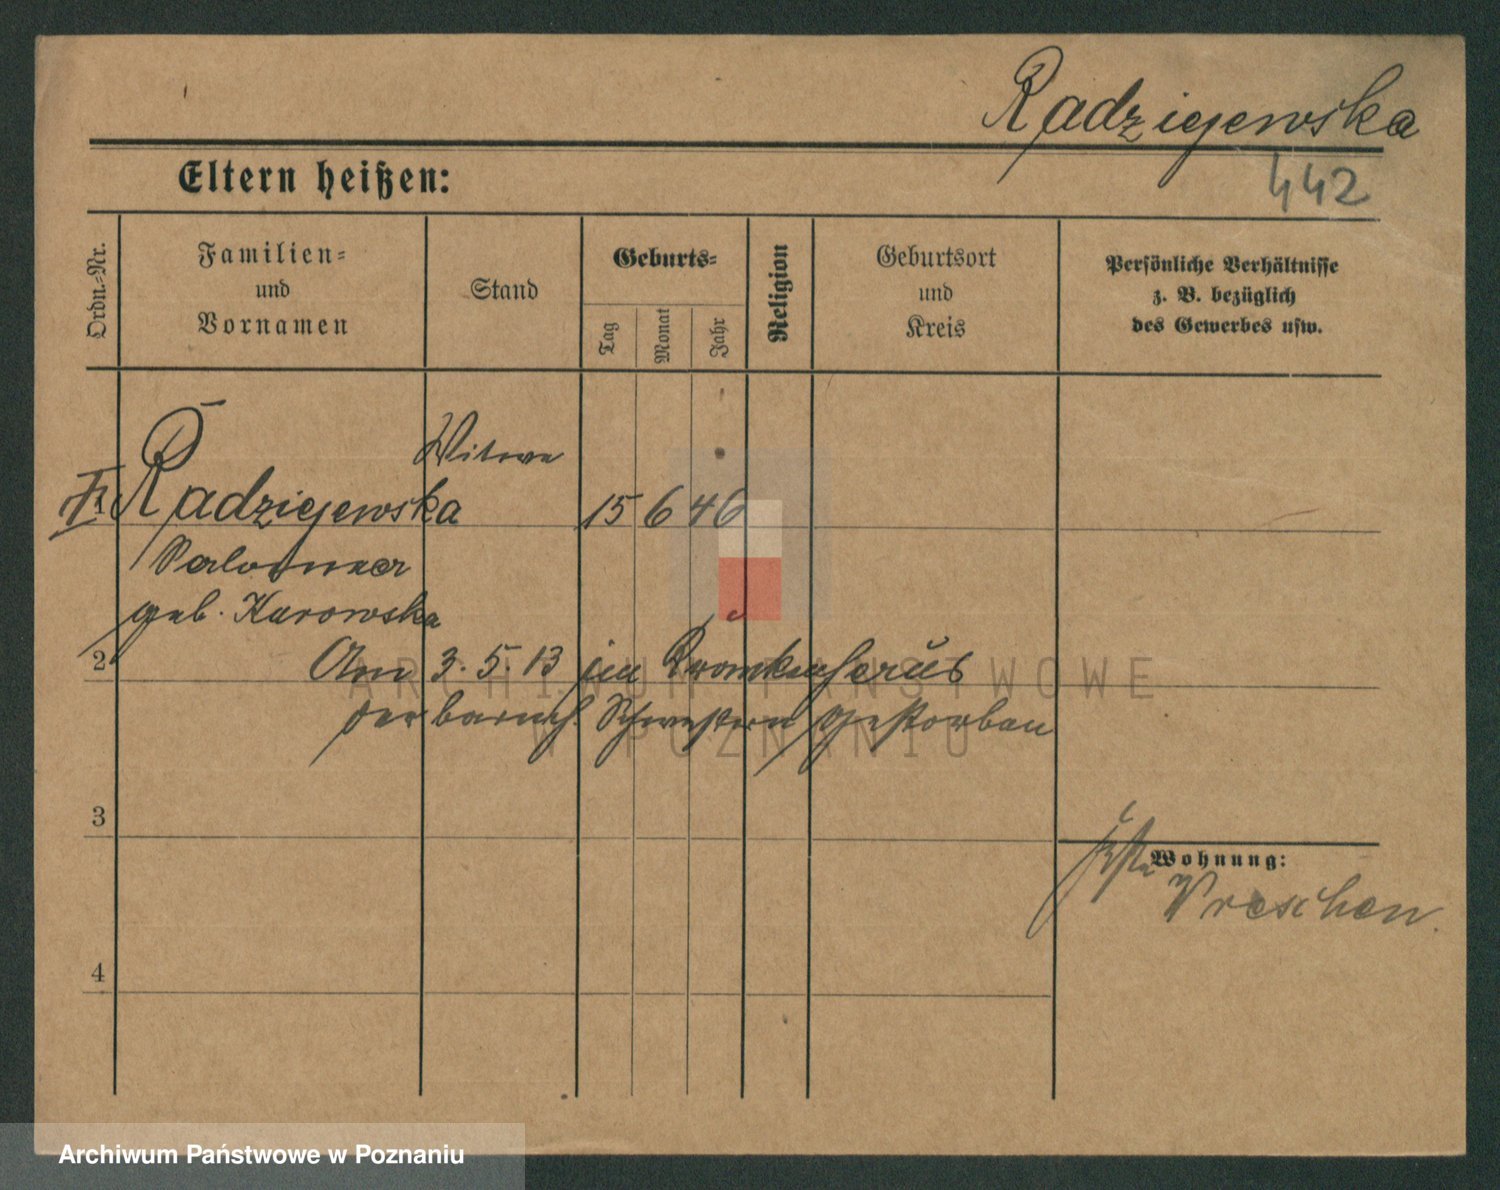 Radziejewska
442
Eltern heißen:
Ordn.-Nr.
Familien-
und
Vornamen
Stand
Geburts-
Tag
Monat
Jahr
Religion
Geburtsort
und
Kreis
Persönliche Verhältnisse
z. B. bezüglich
des Gewerbes usw.
Witwe
1 Radziejewska 15 6 46
Salomea
geb. Karowska
2
Am 3. 5. 13 im Krankenhaus
der barmh. Schwestern gestorben
3
Wohnung:
Wreschen
4
ARCHIWUM PAŃSTWOWE
W POZNANIU
Archiwum Państwowe w Poznaniu